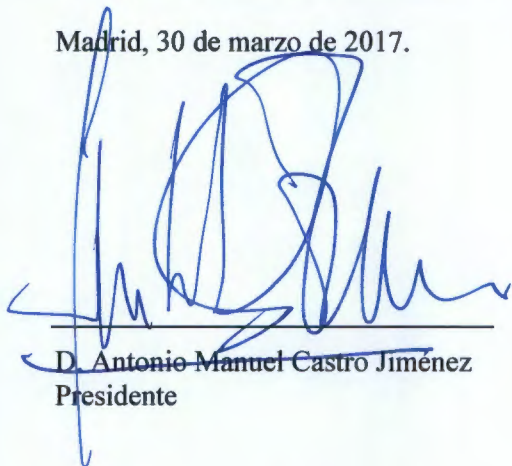 Madrid, 30 de marzo de 2017.
D. Antonio Manuel Castro Jiménez
Presidente